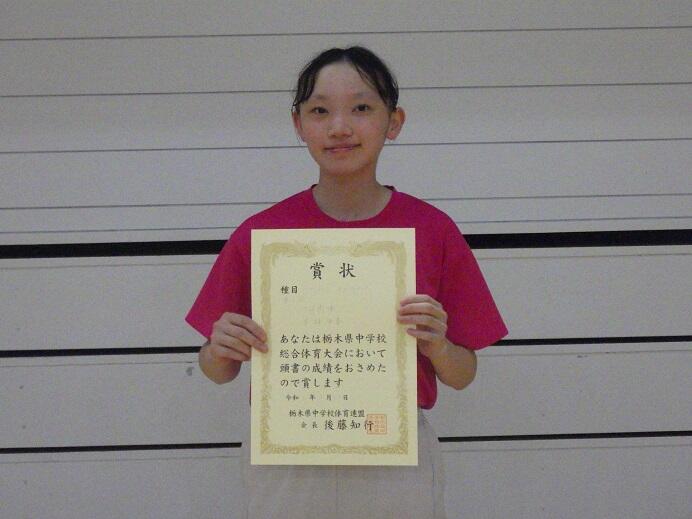 賞状
種目
あなたは栃木県中学校
総合体育大会において
頭書の成績をおさめた
ので賞します
令和 年 月 日
栃木県中学校体育連盟
会長 後藤知行